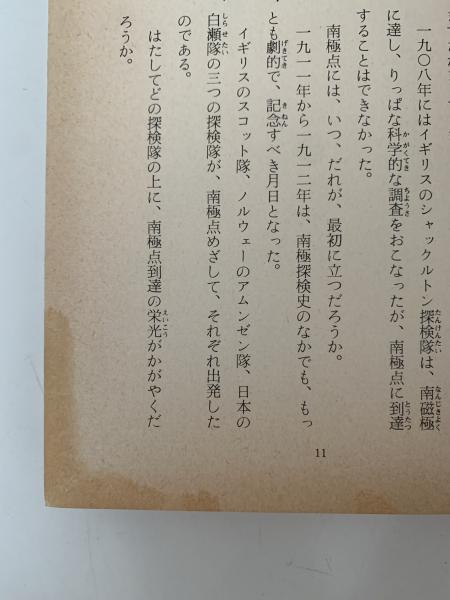 一九〇八年にはイギリスのシャックルトン探検隊は、南磁極
に達し、りっぱな科学的な調査をおこなったが、南極点に到達
することはできなかった。
南極点には、いつ、だれが、最初に立つだろうか。
一九一一年から一九一二年は、南極探検史のなかでも、もっ
とも劇的で、記念すべき月日となった。
イギリスのスコット隊、ノルウェーのアムンゼン隊、日本の
白瀬隊の三つの探検隊が、南極点めざして、それぞれ出発した
のである。
はたしてどの探検隊の上に、南極点到達の栄光がかがやくだ
ろうか。
11